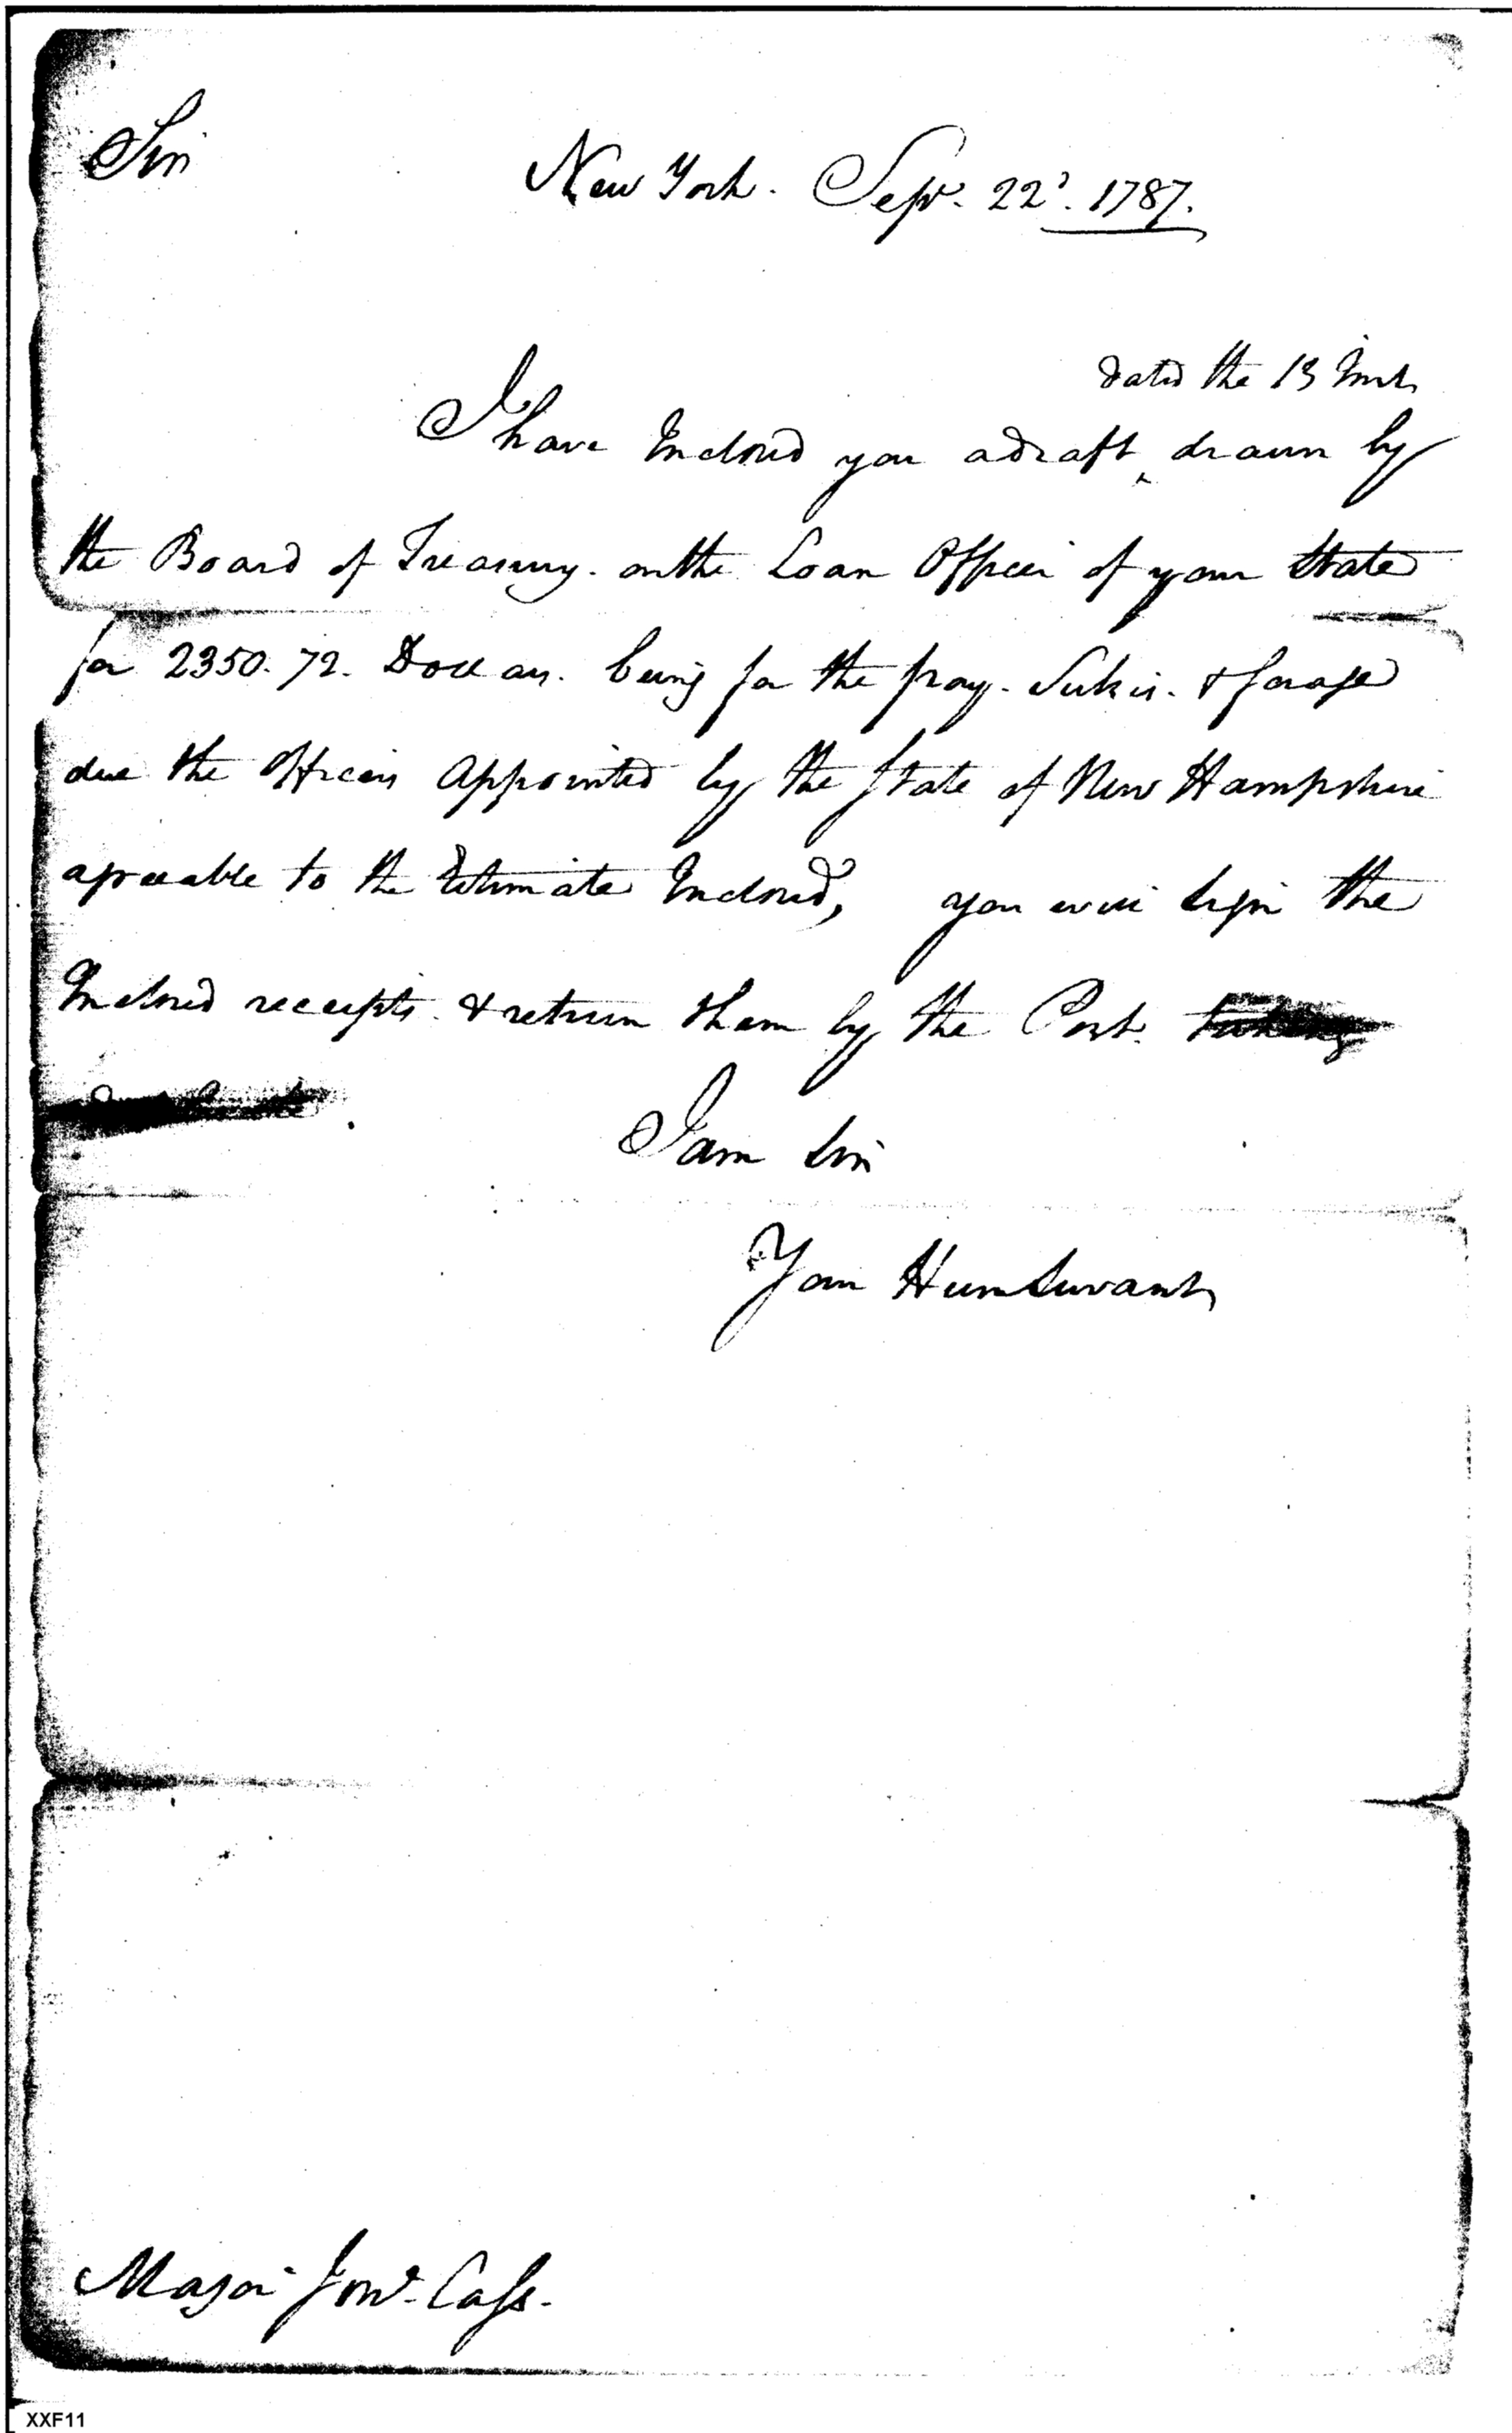 Sir
New York. Sepr. 22d. 1787.
dated the 13 Inst.
I have Inclosed you a draft ‸ drawn by
the Board of Treasury. on the Loan Officer of your State
for 2350. 72. Dollars. being for the pay. Subsis. & forage
due the Officers Appointed by the State of New Hampshire
agreeable to the Estimate Inclosed, you will sign the
Inclosed receipts. & return them by the Post. taking
I am Sir
Your Hum Servant
Major Jona. Cass.
XXF11